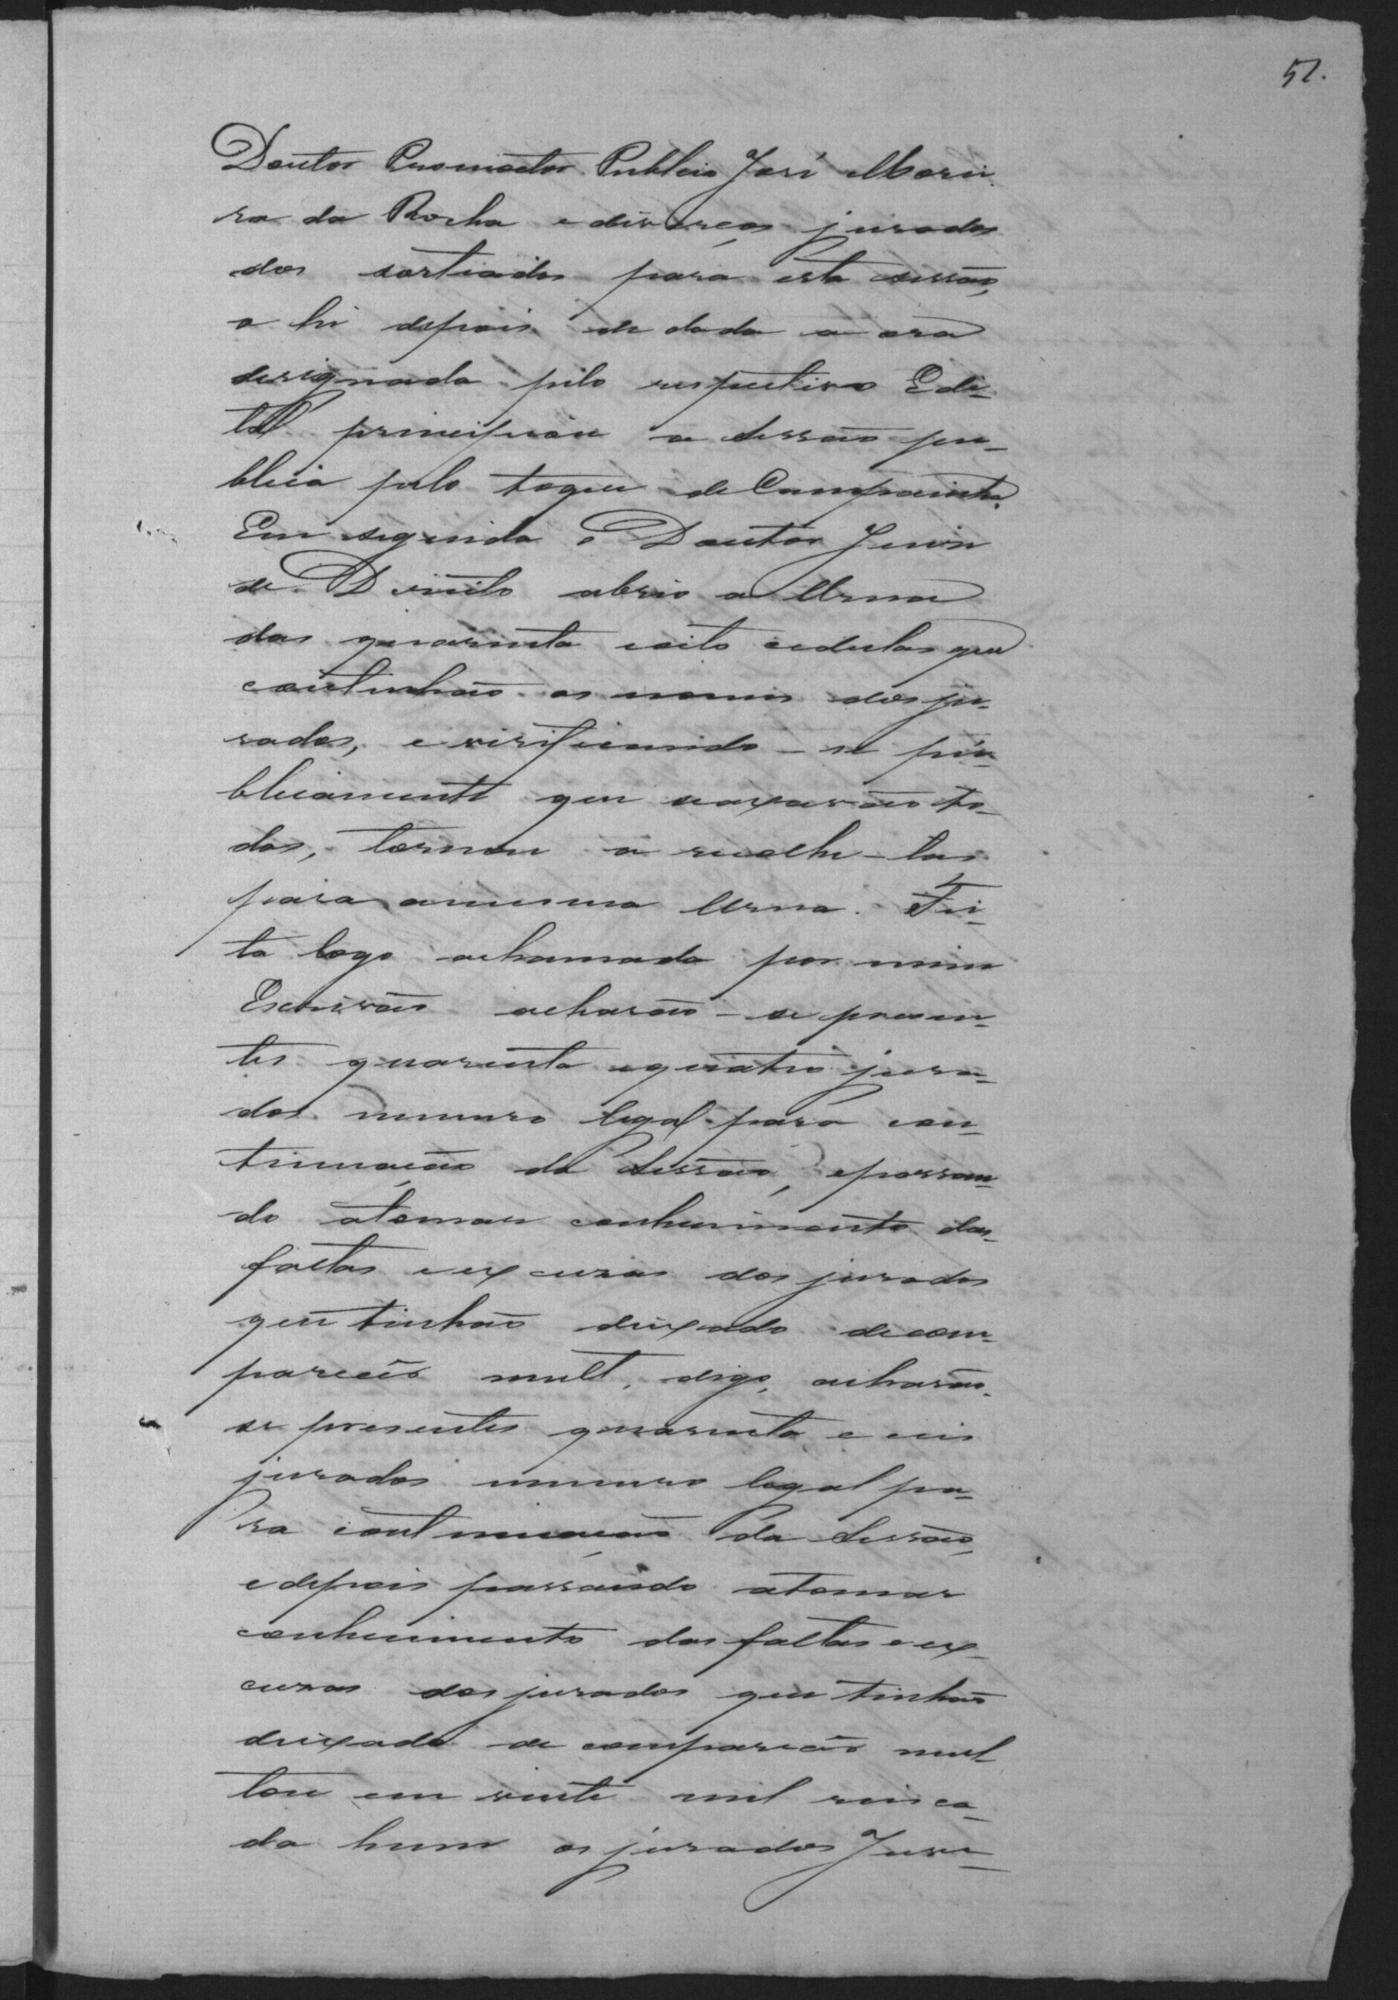 51.
Doutor Promoctor Publico José Morei-
ra da Rocha e diverços jurados
dos sortiados para esta sessão,
a hi depois de dada a ora
designada pelo respectivo Edi-
tal principiou a Sessão pu-
blica pelo toque de Campainha.
Em seguida o Doutor Juis
de Direito abrio a Urna
das quarenta eoito cedulas que
continhão os nomes dos ju-
rados, e virificando-se pu-
blicamente que se axavão to-
das, tornou a recolhe-las
para amesma Urna. Fei-
ta logo achamada por mim
Escrivão acharão-se presen-
tes quarenta equatro jura-
dos numero legal para con-
tinuação da Sessão, epassan-
do atomar conhecimento das
faltas eexcuzas dos jurados
que tinhão deixado decom-
parecer mult, digo, acharão-
se presentes quarenta e seis
jurados numero legal pa-
ra continuação da Sessão,
edepois passando atomar
conhecimento das faltas e ex-
cuzas dos jurados que tinhão
deixado de comparecer mul-
tou em vinte mil reis ca-
da hum os jurados Juve-